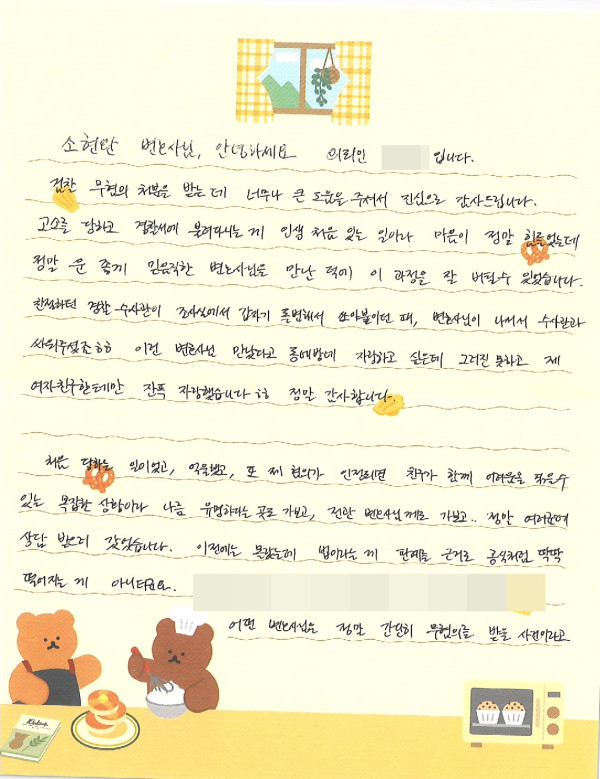 소헌완 변호사님, 안녕하세요 의뢰인 입니다.
검찰 무혐의 처분을 받는데 너무나 큰 도움을 주셔서 진심으로 감사드립니다.
고소를 당하고 경찰서에 불려다니는 게 인생 처음 있는 일이라 마음이 정말 힘들었는데
정말 운 좋게 믿음직한 변호사님을 만난 덕에 이 과정을 잘 버틸수 있었습니다.
친절하던 경찰 수사관이 조사실에서 갑자기 돌변해서 쏘아붙이던 때, 변호사님이 나서서 수사관과
싸워주셨죠ㅎㅎ 이런 변호사님 만났다고 동네방네 자랑하고 싶은데 그러진 못하고 제
여자친구한테만 잔뜩 자랑했습니다ㅎㅎ 정말 감사합니다.
처음 당하는 일이었고, 억울했고, 또 제 혐의가 인정되면 친구가 함께 어려움을 겪을수
있는 복잡한 상황이라 나름 유명하다는 곳도 가보고, 전관 변호사님께도 가보고.. 정말 여러군데
상담 받으러 갔었습니다. 이전에는 몰랐는데 법이라는 게 판례를 근거로 공식처럼 딱딱
떨어지는 게 아니더라고요.
어떤 변호사님은 정말 간단히 무혐의를 받을 사건이라고